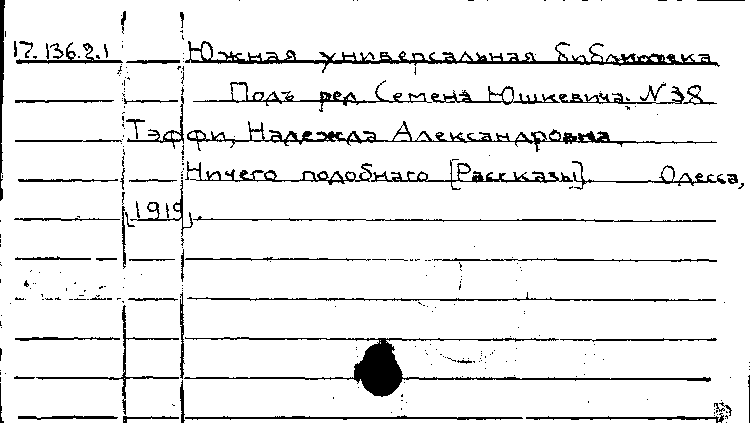 17.136.2.1 Южная универсальная библиотека
Подъ ред. Семена Юшкевича. N 38
Тэффи, Надежда Александровна.
Ничего подобнаго [Рассказы]. Одесса,
[1919].